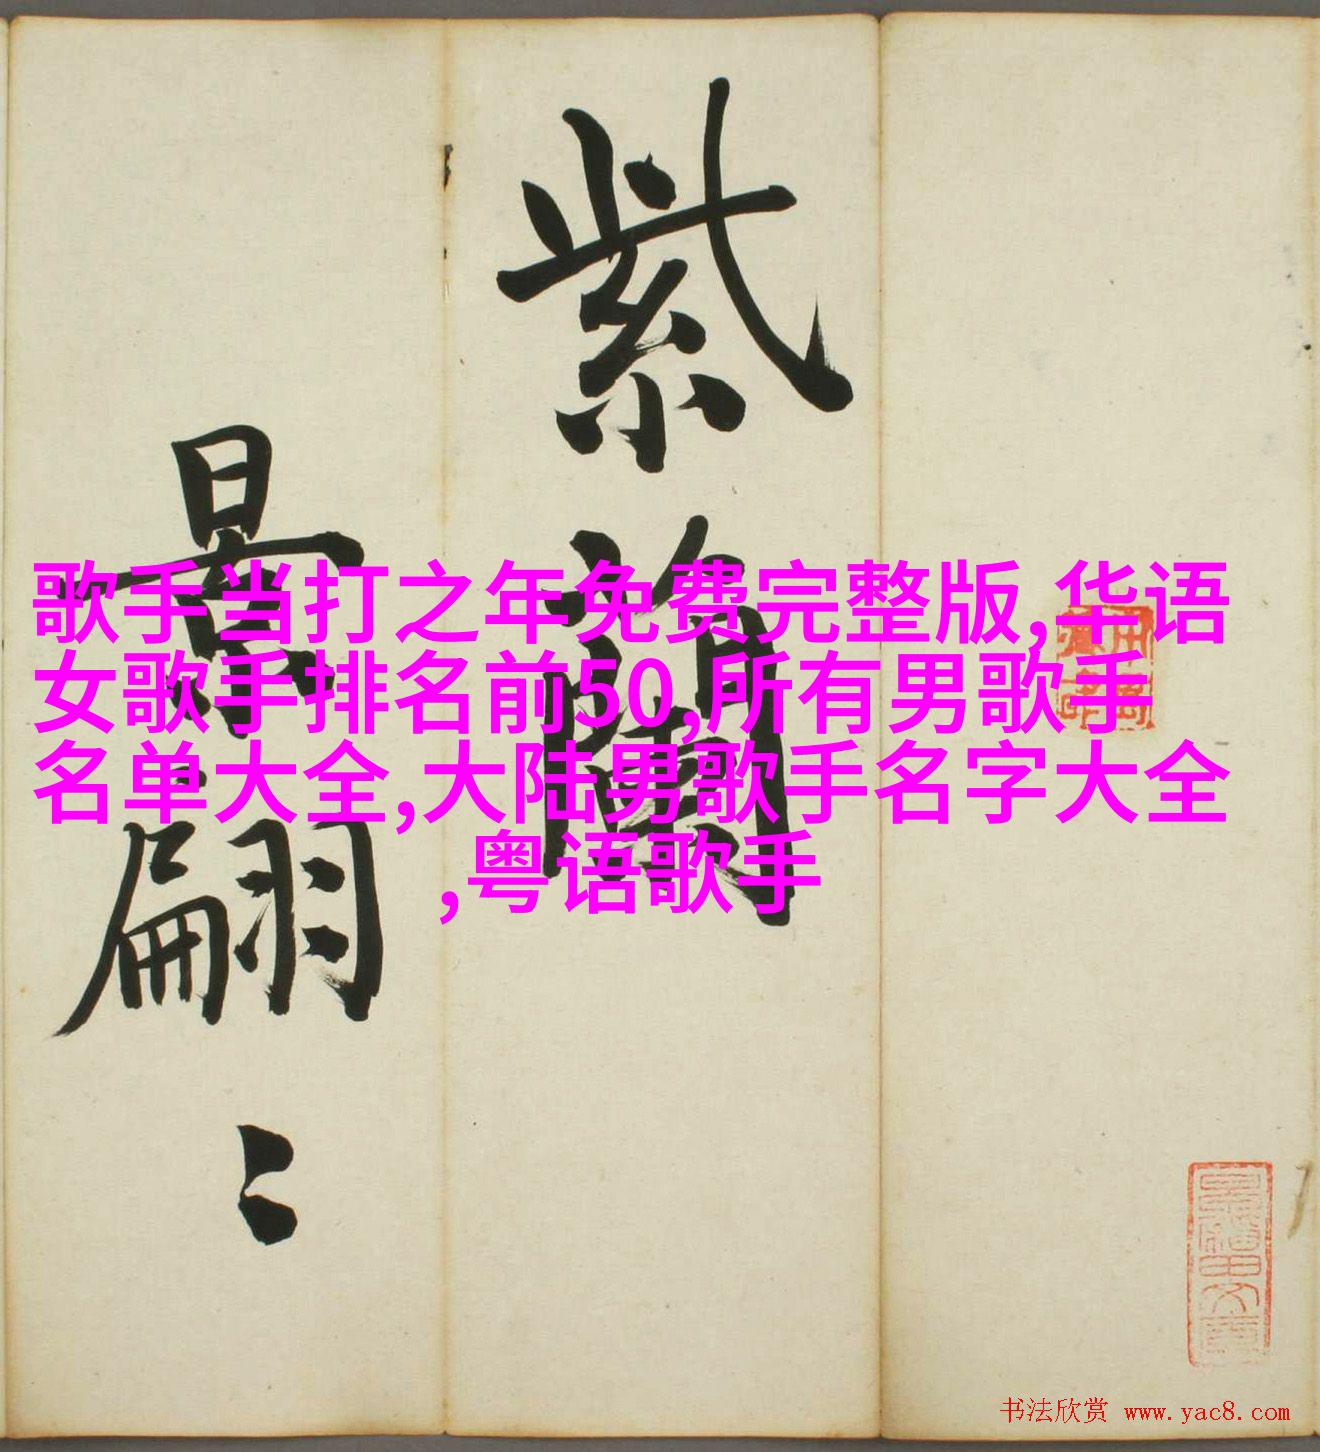 紫蘭
景翩〻
歌手当打之年免费完整版,华语
女歌手排名前50,所有男歌手
名单大全,大陆男歌手名字大全
,粤语歌手
书法欣赏 www.yac8.com